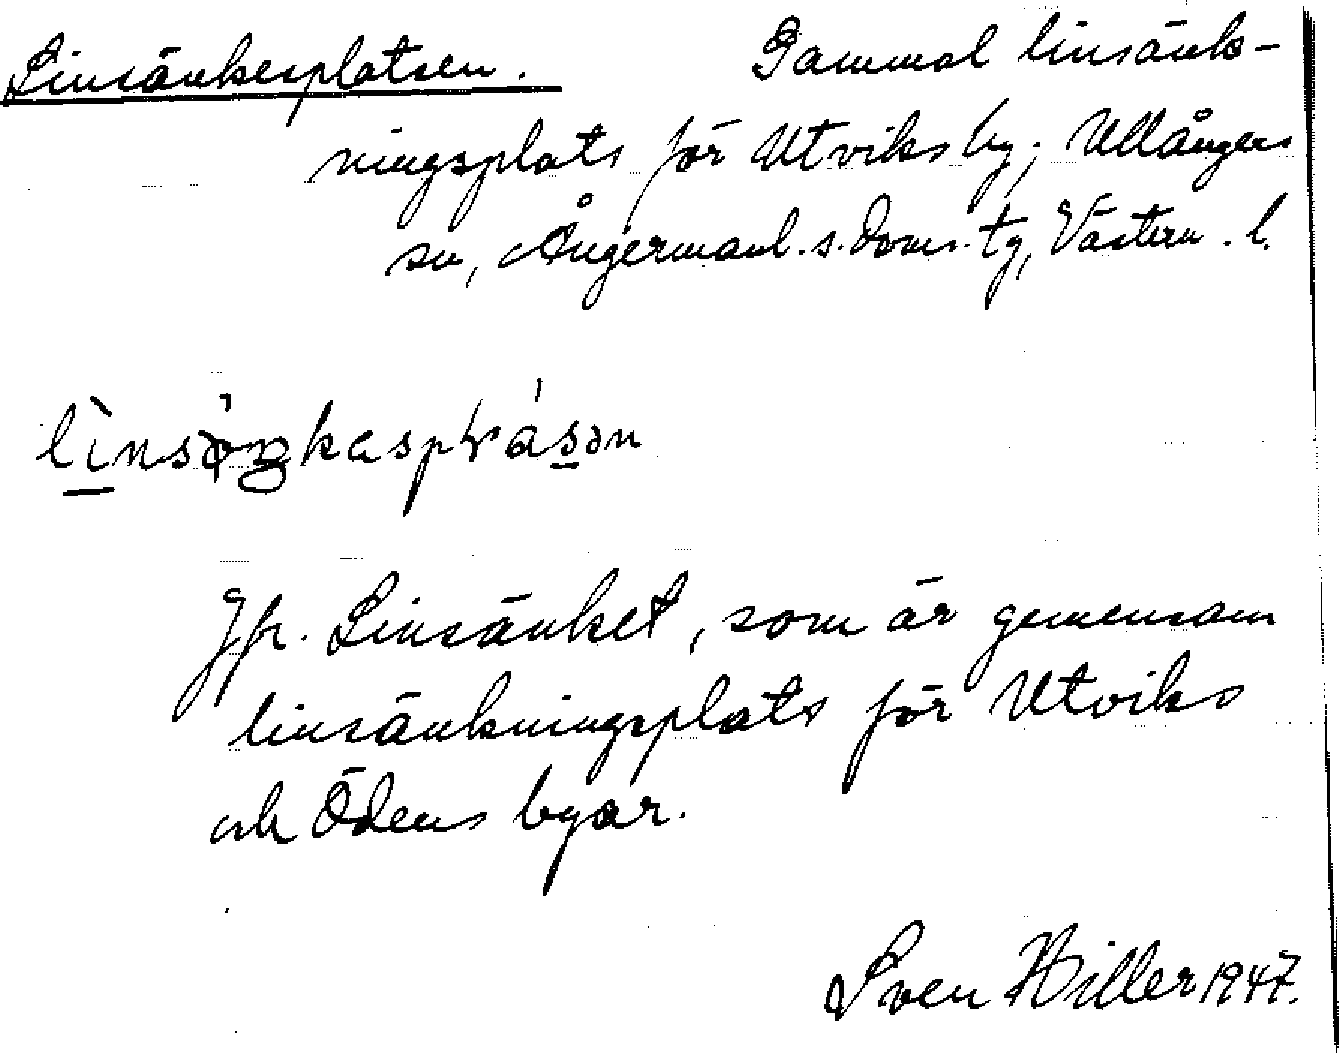 Linsänkesplatsen. Gammal linsänk-
ningsplats för Utviks by, Ullångers
sn, Ångermanl. s. doms. tg, Västern. l.
Jfr. Linsänket, som är gemensam
linsänkningsplats för Utviks
och Ödens byar.
Sven Hiller 1947.